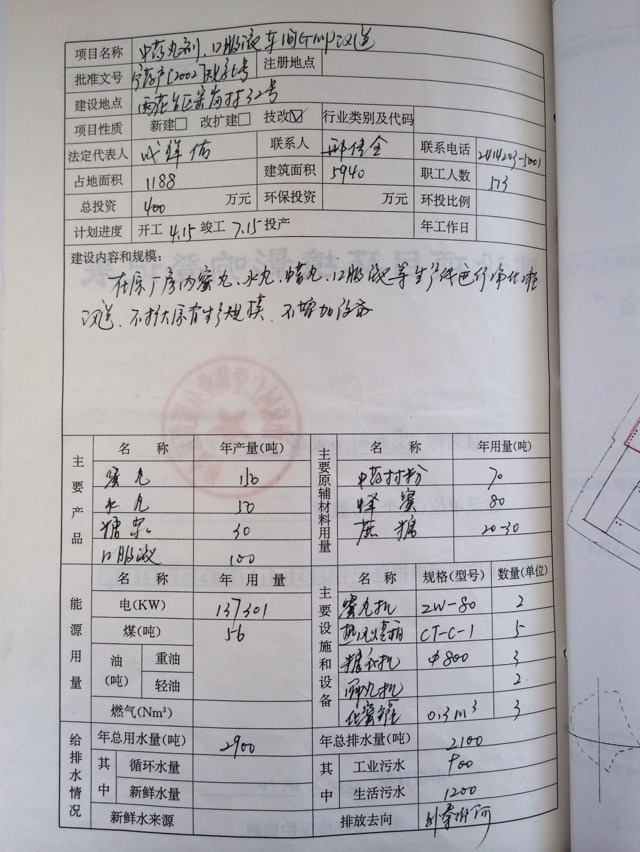 项目名称 中药丸剂、口服液车间GMP改造
批准文号 注册地点
建设地点 雨花台区 村32号
项目性质 新建□ 改扩建□ 技改☑ 行业类别及代码
法定代表人 联系人 联系电话
占地面积 1188 建筑面积 5940 职工人数 173
总投资 400 万元 环保投资 万元 环投比例
计划进度 开工 4.15 竣工 7.15 投产 年工作日
建设内容和规模:
在原厂房内蜜丸、水丸、糖丸、口服液等生产线进行净化
改造、不扩大原有生产规模、不增加设备
主要产品 名称 年产量(吨) 主要原辅材料用量 名称 年用量(吨)
蜜丸 150 中药材粉 70
水丸 50 蜂蜜 80
糖浆 30 蔗糖 20-30
口服液 100
能源用量 名称 年用量 主要设施和设备 名称 规格(型号) 数量(单位)
电(KW) 137301 蜜丸机 ZW-80 2
煤(吨) 56 热风烤箱 CT-C-1 5
油(吨) 重油 糖衣机 Φ800 3
轻油 丸机 2
燃气(Nm³) 化蜜罐 0.3m³ 3
给排水情况 年总用水量(吨) 2900 年总排水量(吨) 2100
其中 循环水量 其中 工业污水 900
新鲜水量 生活污水 1200
新鲜水来源 排放去向 外秦淮河